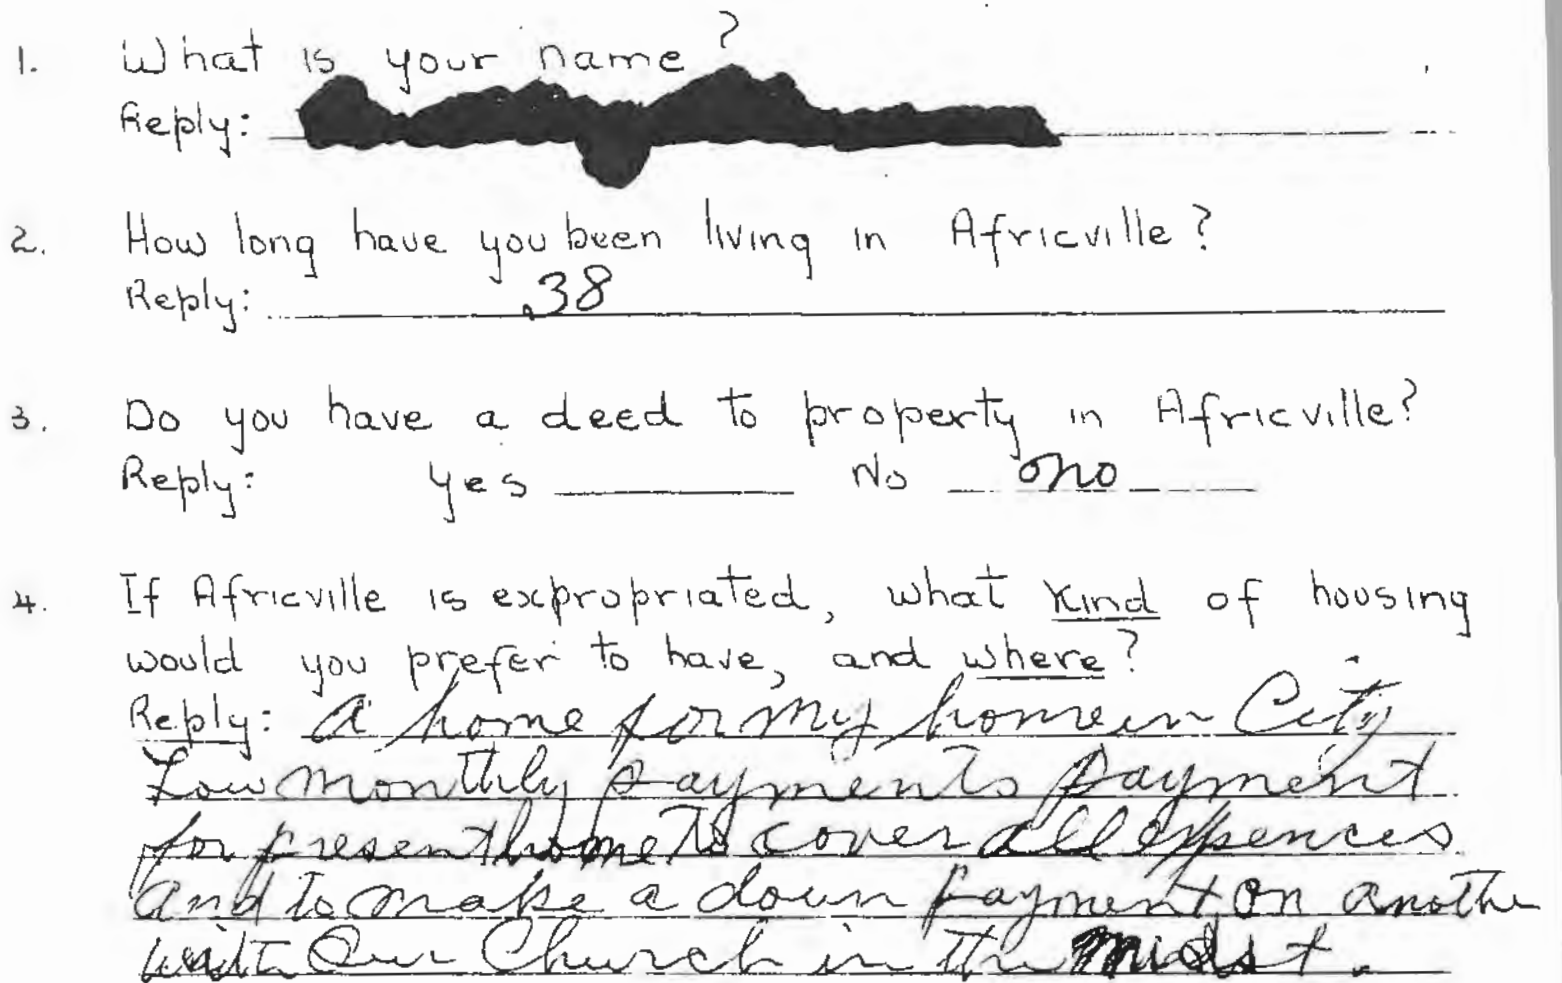 1. What is your name?
Reply:
2. How long have you been living in Africville?
Reply: 38
3. Do you have a deed to property in Africville?
Reply: Yes No no
4. If Africville is expropriated, what kind of housing
would you prefer to have, and where?
Reply: A home for my home in City
Low monthly payments payment
for present home to cover all expences
and to make a down payment on anothe
with Our Church in the midst.